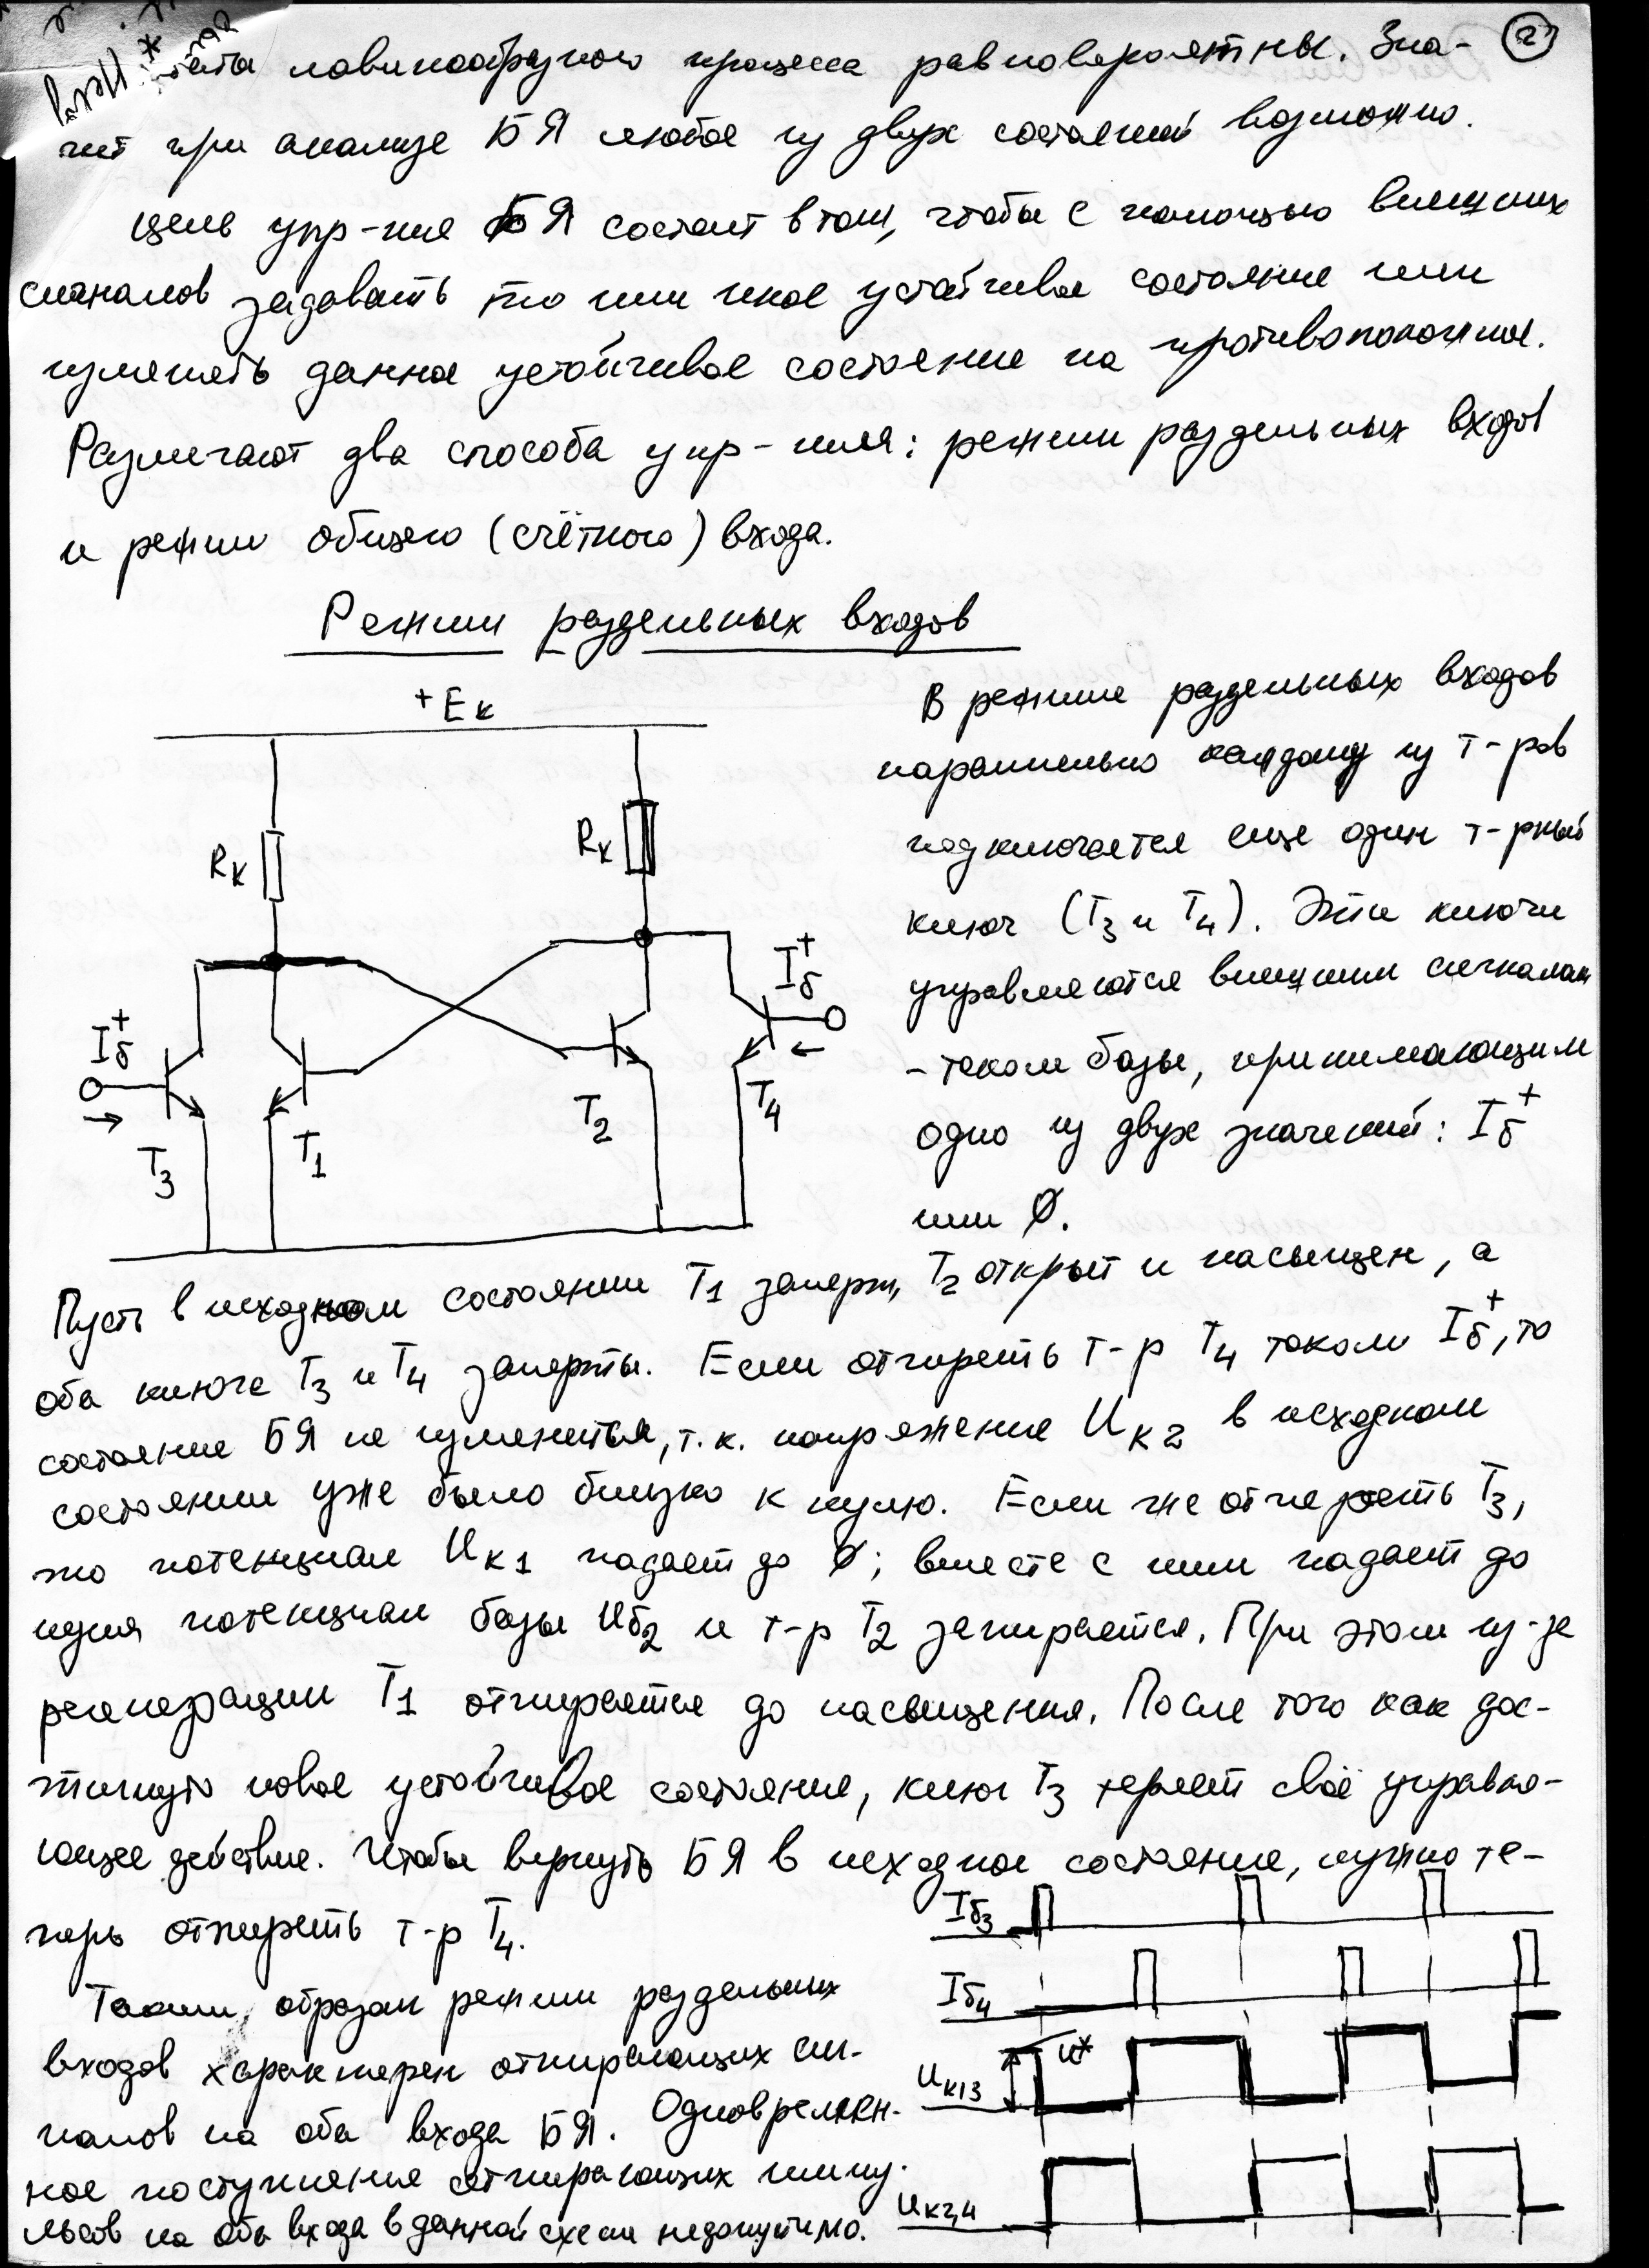 лавинообразного процесса равновероятны. Зна-
2
чит при анализе БЯ любое из двух состояний возможно.
Цель упр-ния БЯ состоит в том, чтобы с помощью внешних
сигналов задавать то или иное устойчивое состояние или
изменять данное устойчивое состояние на противоположное.
Различают два способа упр-ния: режим раздельных входов
и режим общего (счётного) входа.
Режим раздельных входов
В режиме раздельных входов
параллельно каждому из т-ров
подключается еще один т-рный
ключ (T3 и T4). Эти ключи
управляются внешним сигналом
- током базы, принимающим
одно из двух значений: Iб+
или 0.
+Eк
Rк
Rк
Iб+
Iб+
T3
T1
T2
T4
Пусть в исходном состоянии T1 заперт, T2 открыт и насыщен, а
оба ключа T3 и T4 заперты. Если отпереть т-р T4 током Iб+, то
состояние БЯ не изменится, т.к. напряжение Uк2 в исходном
состоянии уже было близко к нулю. Если же отпереть T3,
то потенциал Uк1 падает до 0; вместе с ним падает до
нуля потенциал базы Uб2 и т-р T2 запирается. При этом из-за
регенерации T1 отпирается до насыщения. После того как дос-
тигнуто новое устойчивое состояние, ключ T3 теряет своё управля-
ющее действие. Чтобы вернуть БЯ в исходное состояние, нужно те-
перь отпереть т-р T4.
Таким образом режим раздельных
входов характерен отпирающих сиг-
налов на оба входа БЯ. Одновремен-
ное поступление отпирающих импу-
льсов на оба входа в данной схеме недопустимо.
Iб3
Iб4
Uк13
U*
Uк2,4